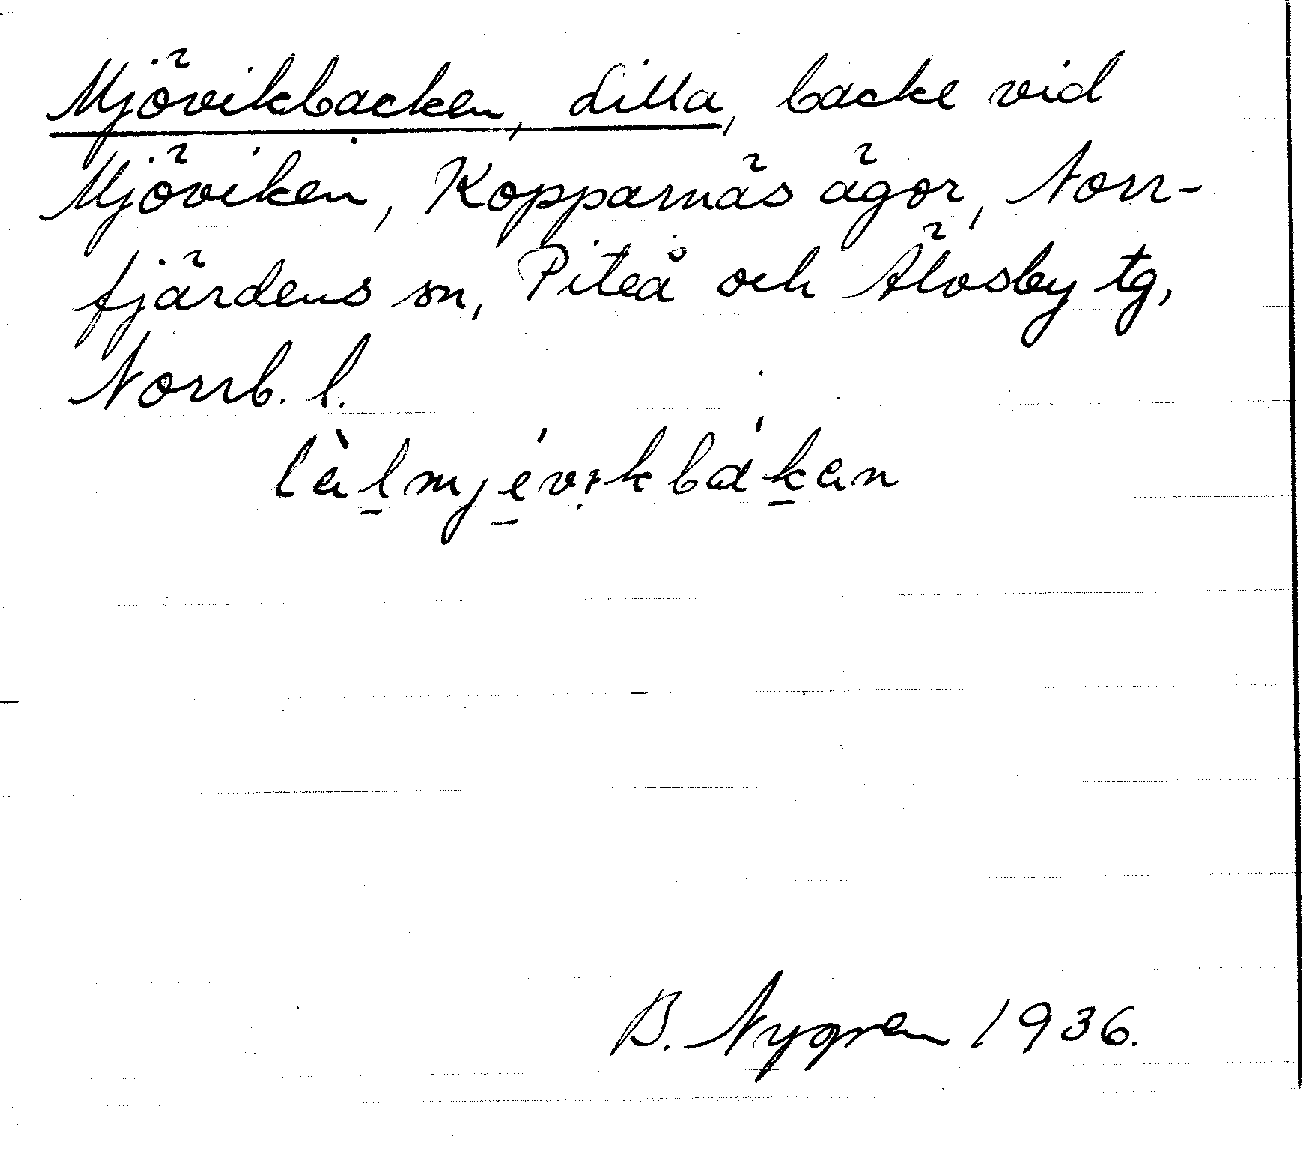 Mjövikbacken, Lilla, backe vid
Mjöviken, Kopparnäs ägor, Norr-
fjärdens sn, Piteå och Älvsby tg,
Norrb. l.
lèl̲mjé̲vịkbák̲en
B. Nygren 1936.